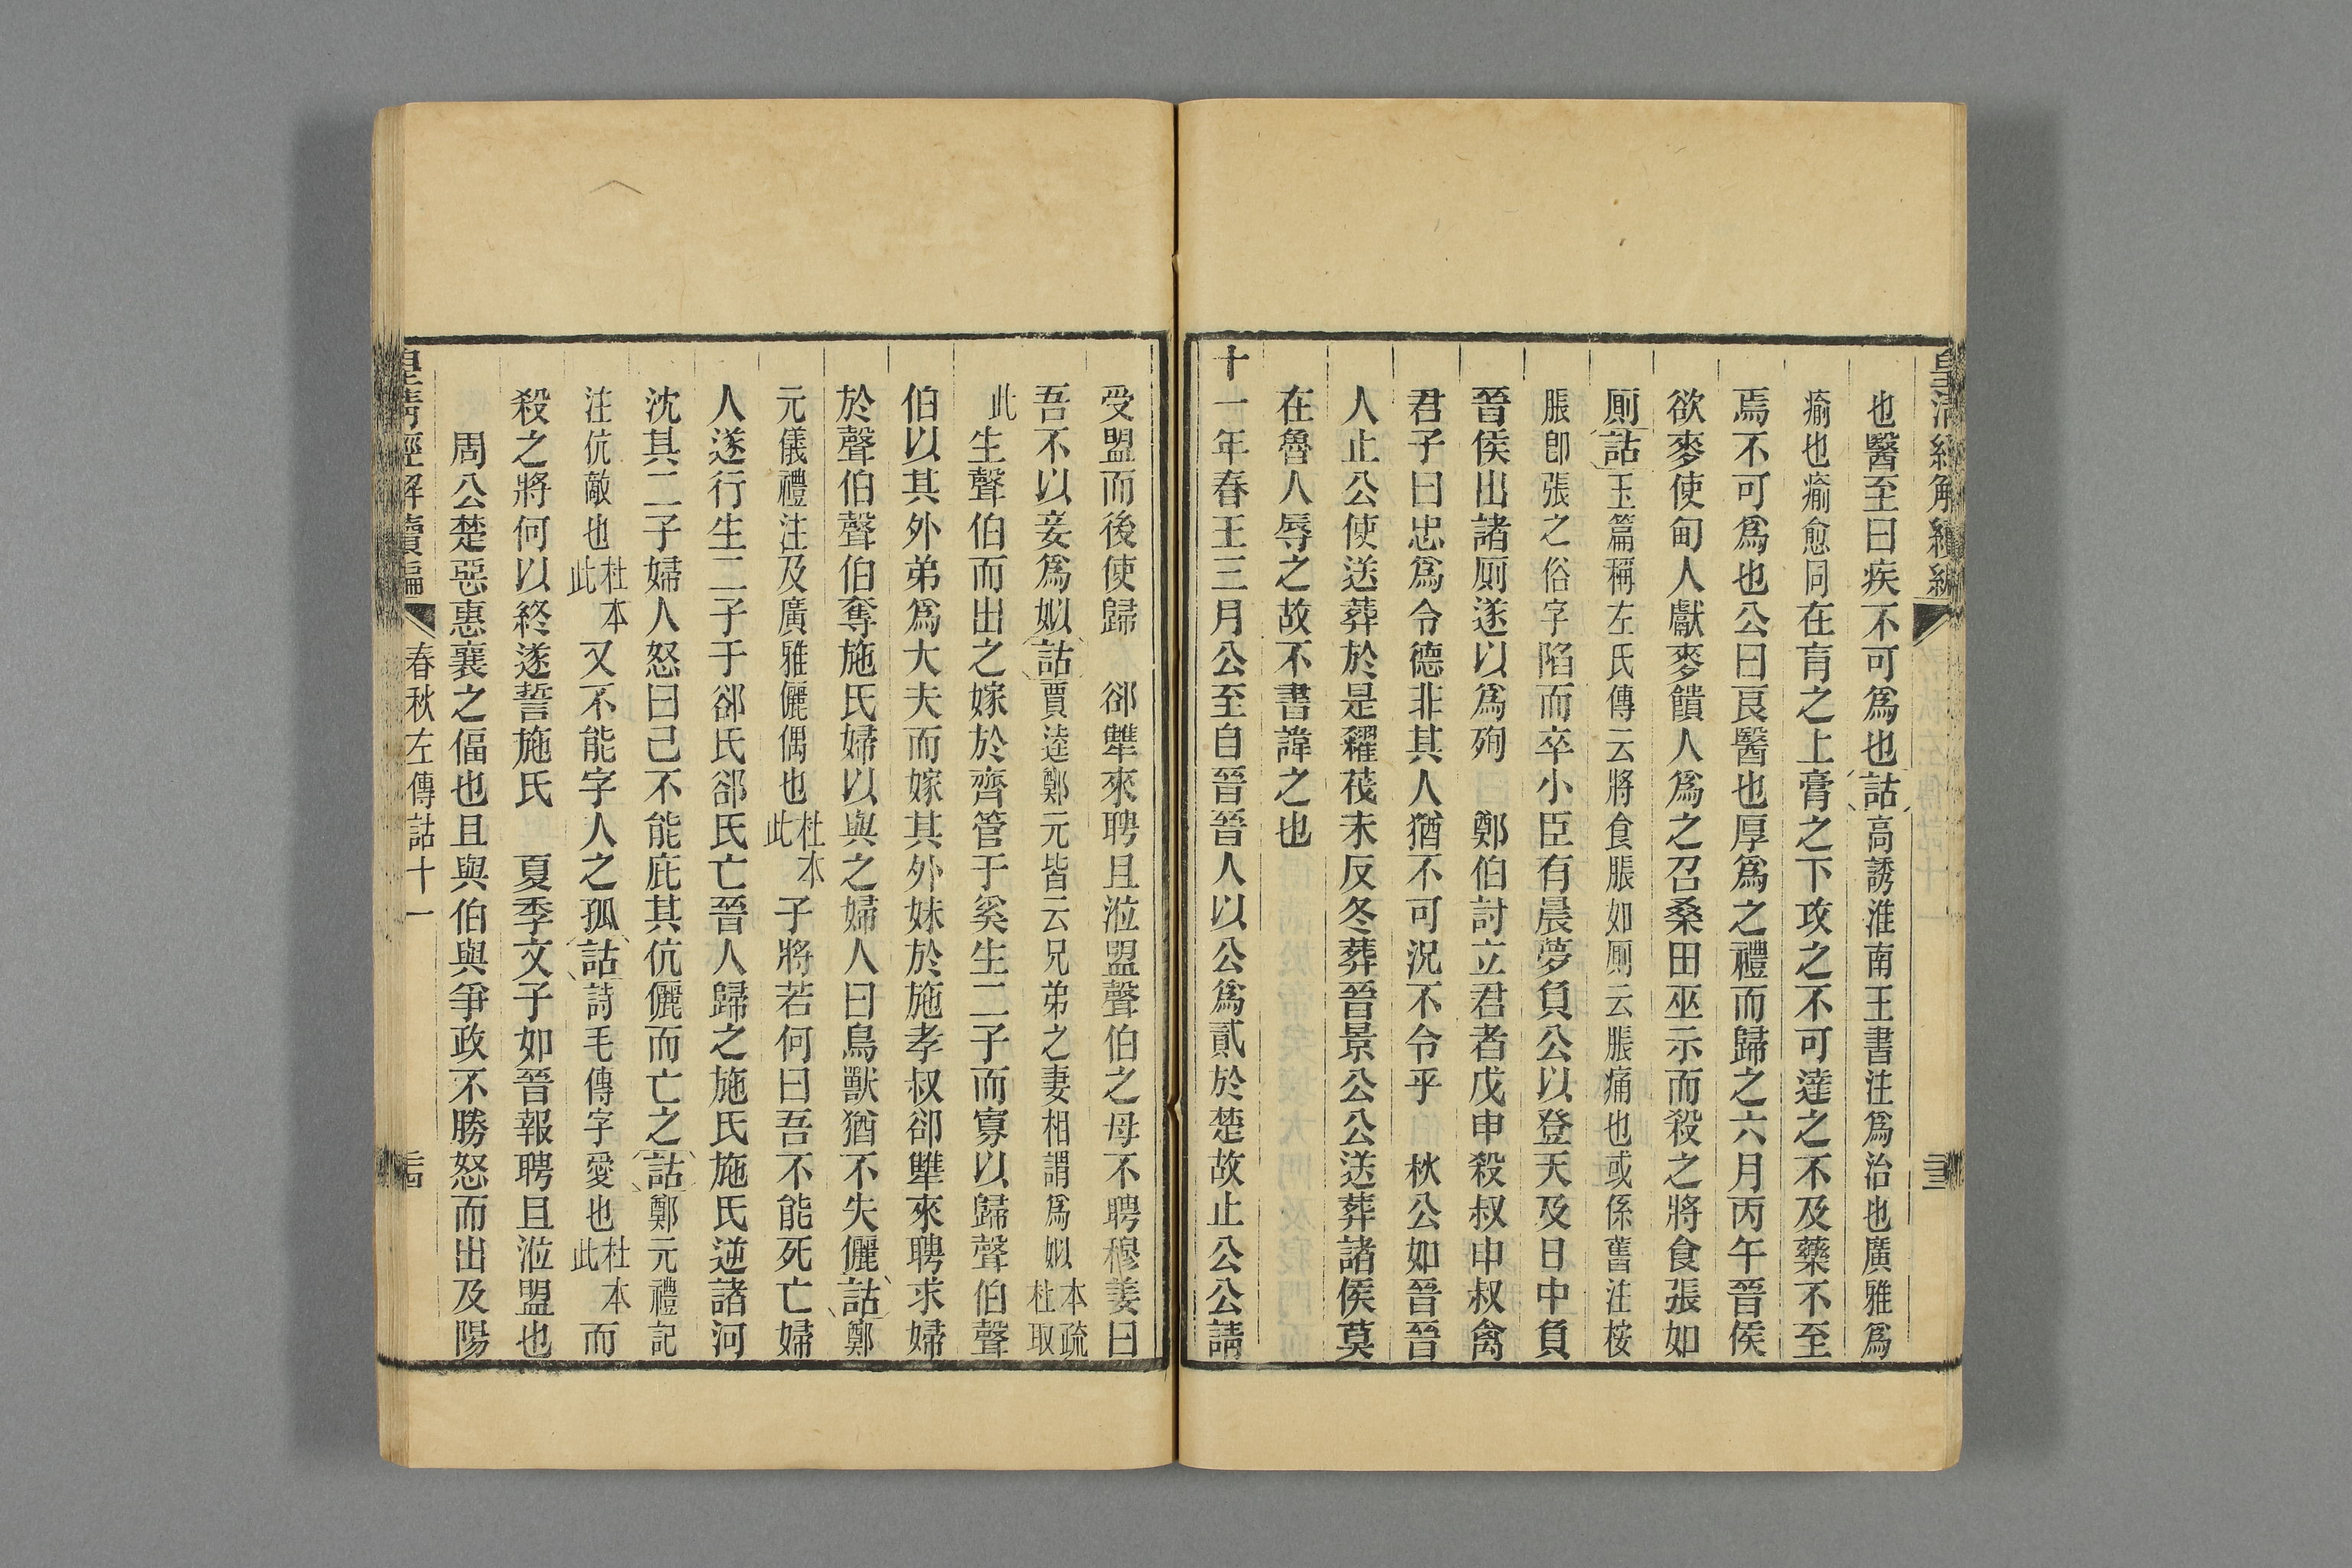 皇清經解續編
也醫至曰疾不可爲也詁高誘淮南王書注爲治也廣雅爲
瘉也瘉愈同在肓之上膏之下攻之不可達之不及藥不至
焉不可爲也公曰良醫也厚爲之禮而歸之六月丙午晉侯
欲麥使甸人獻麥饋人爲之召桑田巫示而殺之將食張如
厠詁玉篇稱左氏傳云將食脹如厠云脹痛也或係舊注桉
脹卽張之俗字陷而卒小臣有晨夢負公以登天及日中負
晉侯出諸厠遂以爲殉　鄭伯討立君者戊申殺叔申叔禽
君子曰忠爲令德非其人猶不可況不令乎　秋公如晉晉
人止公使送葬於是糴茷未反冬葬晉景公公送葬諸侯莫
在魯人辱之故不書諱之也
十一年春王三月公至自晉晉人以公爲貳於楚故止公公請
受盟而後使歸　郤犨來聘且涖盟聲伯之母不聘穆姜曰
吾不以妾爲姒詁賈逵鄭元皆云兄弟之妻相謂爲姒本疏杜取
此生聲伯而出之嫁於齊管于奚生二子而寡以歸聲伯聲
伯以其外弟爲大夫而嫁其外妹於施孝叔郤犨來聘求婦
於聲伯聲伯奪施氏婦以與之婦人曰鳥獸猶不失儷詁鄭
元儀禮注及廣雅儷偶也杜本此子將若何曰吾不能死亡婦
人遂行生二子于郤氏郤氏亡晉人歸之施氏施氏逆諸河
沈其二子婦人怒曰己不能庇其伉儷而亡之詁鄭元禮記
注伉敵也杜本此又不能字人之孤詁詩毛傳字愛也杜本此而
殺之將何以終遂誓施氏　夏季文子如晉報聘且涖盟也
周公楚惡惠襄之偪也且與伯與爭政不勝怒而出及陽
皇清經解續編　春秋左傳詁十一